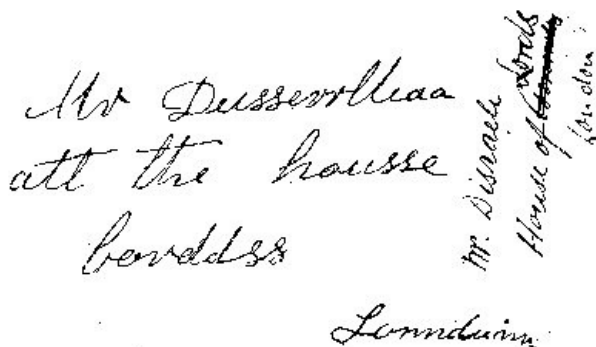 Mr Dusseorlliaa
att the housse
lorddss
Lonnduinn
Mr. Disraeli
House of Lords
London